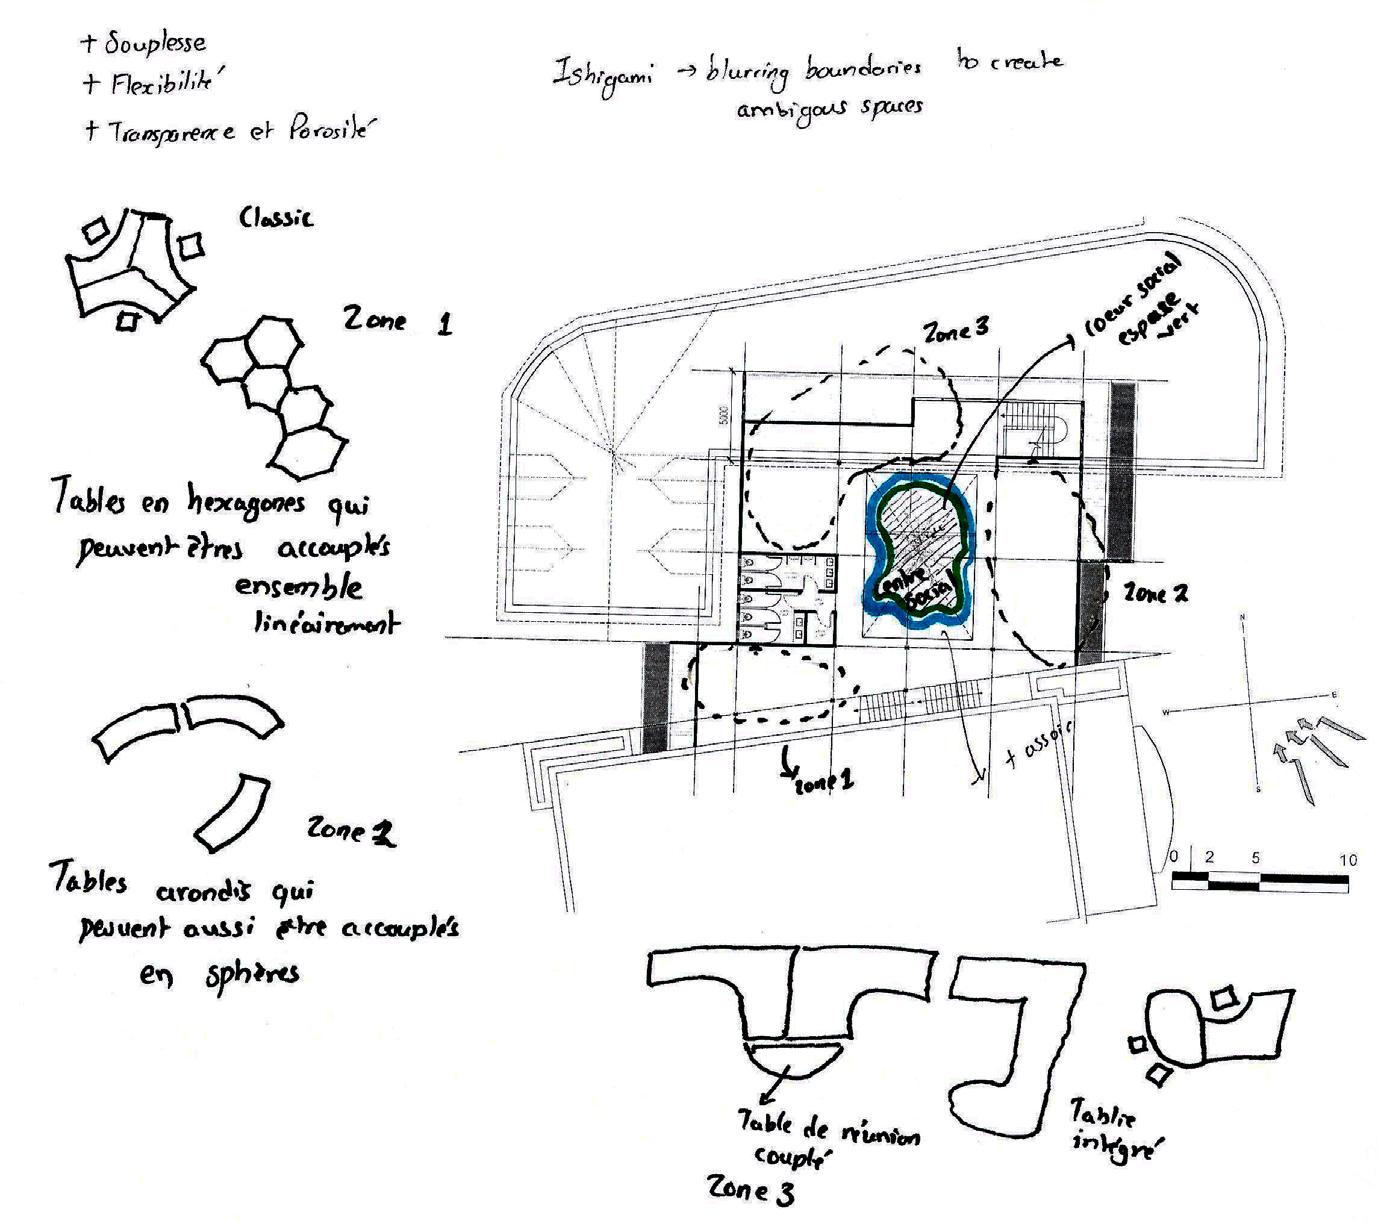 + Souplesse
+ Flexibilité
+ Transparence et Porosité
Ishigami → blurring boundaries to create
ambigous spaces
Classic
Zone 1
Tables en hexagones qui
peuvent êtres accouplés
ensemble
linéairement
Zone 2
Tables arondis qui
peuvent aussi être accouplés
en sphères
Zone 3
coeur social
espace
vert
5000
centre
social
Zone 2
zone 1
+ assoir
N
W
E
S
0 2 5 10
Table de réunion
couplé
Zone 3
Table
intégré